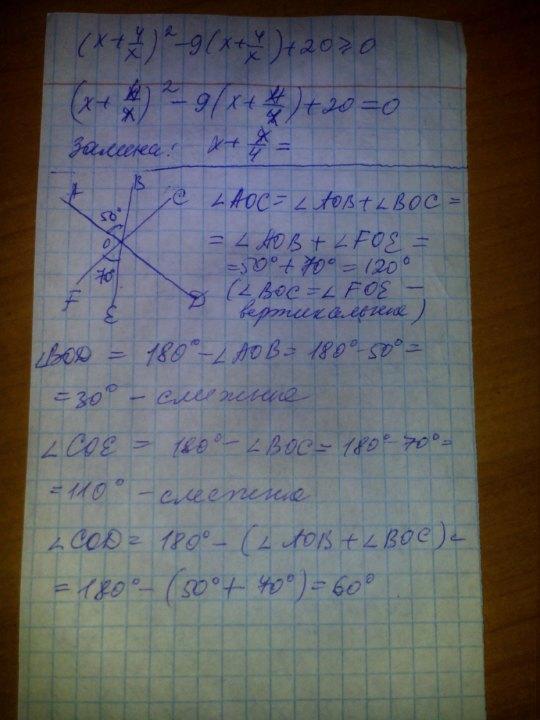 (x+4/x)²-9(x+4/x)+20≥0
(x+4/x)²-9(x+4/x)+20=0
Замена: x+x/4=
A B C
50°
O
70°
F E D
∠AOC=∠AOB+∠BOC=
=∠AOB+∠FOE=
=50°+70°=120°
(∠BOC=∠FOE-
вертикальные)
∠BOD = 180°-∠AOB=180°-50°=
=30° - смежные
∠COE = 180°-∠BOC=180°-70°=
=110° - смежные
∠COD=180°-(∠AOB+∠BOC)=
=180°-(50°+70°)=60°